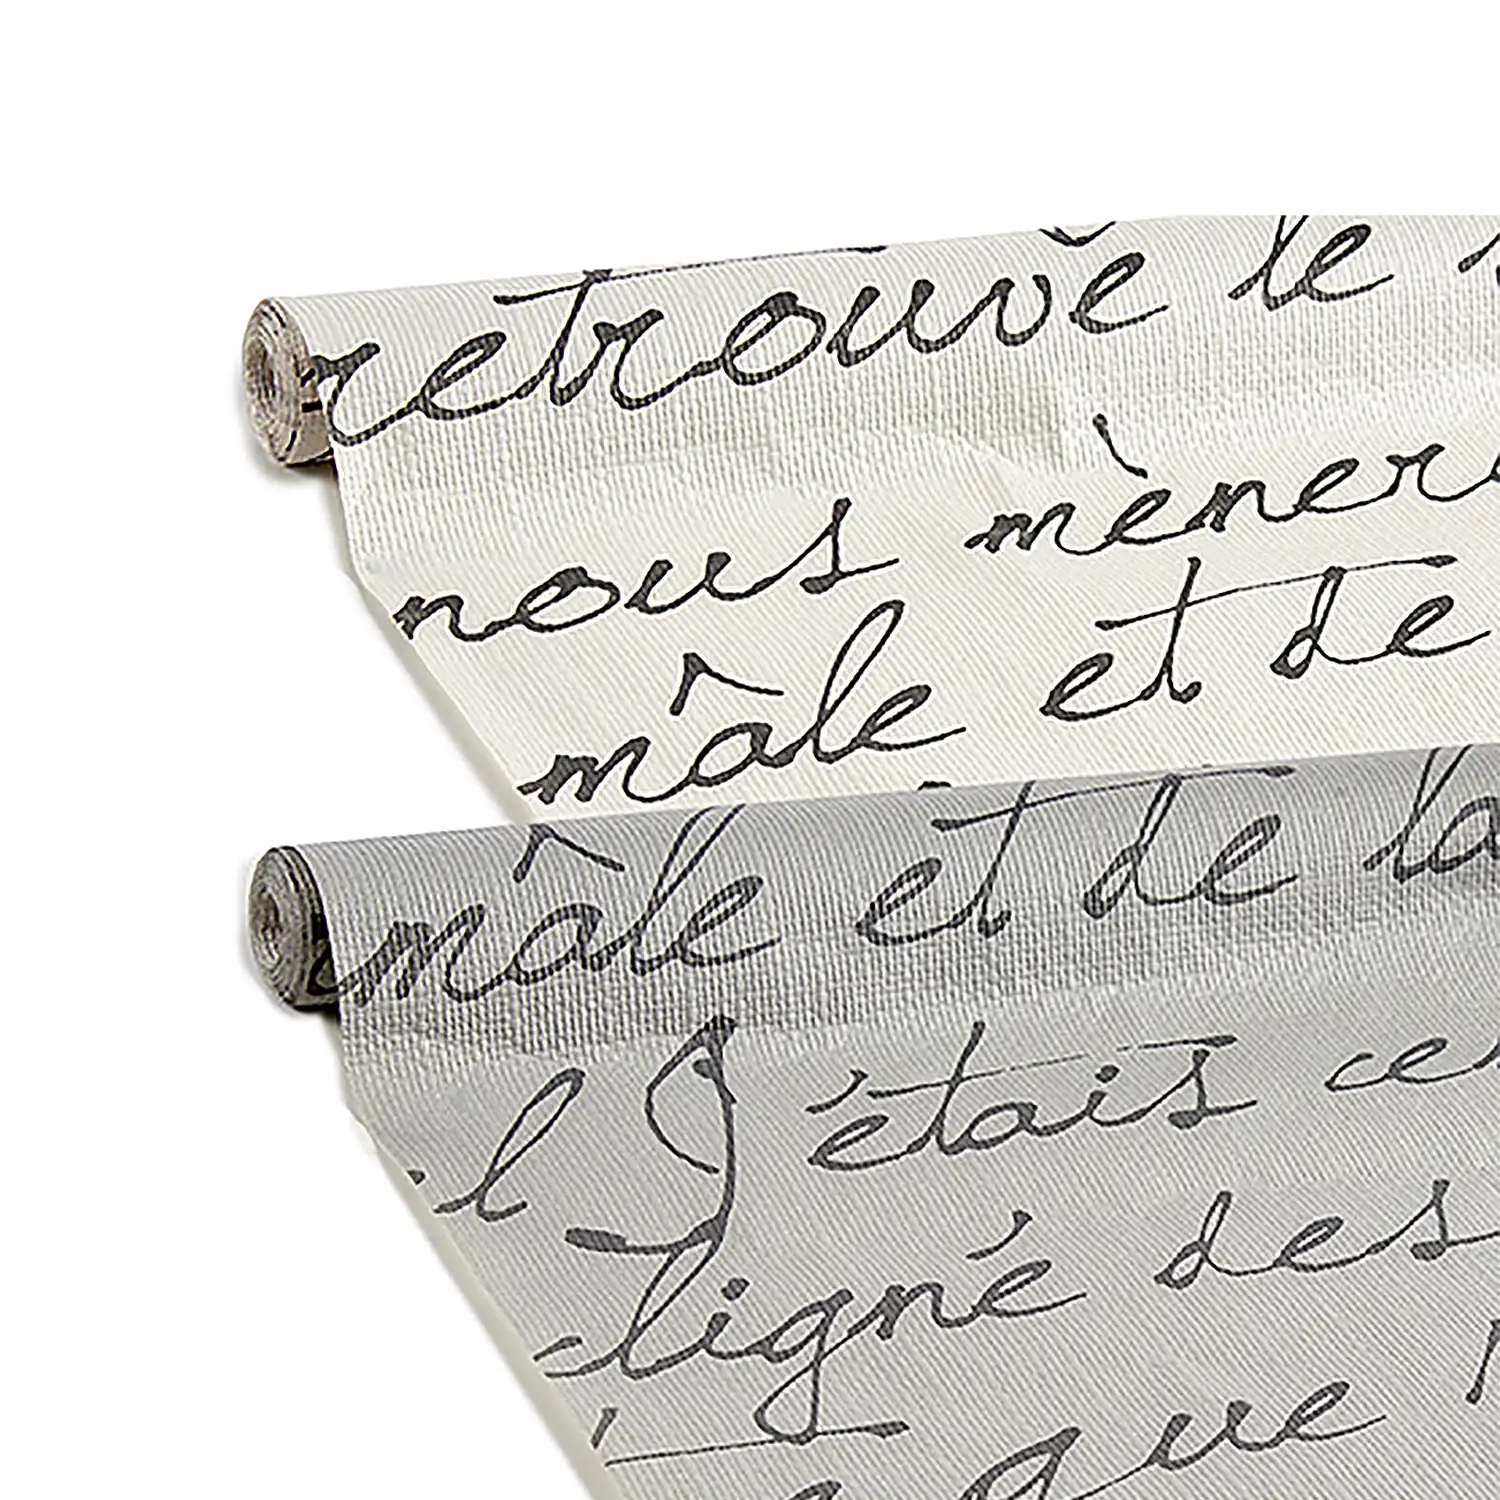 retrouvè le
nous mèner
mâle et de
mâle et de la
l J'étais ce
ligné des
que